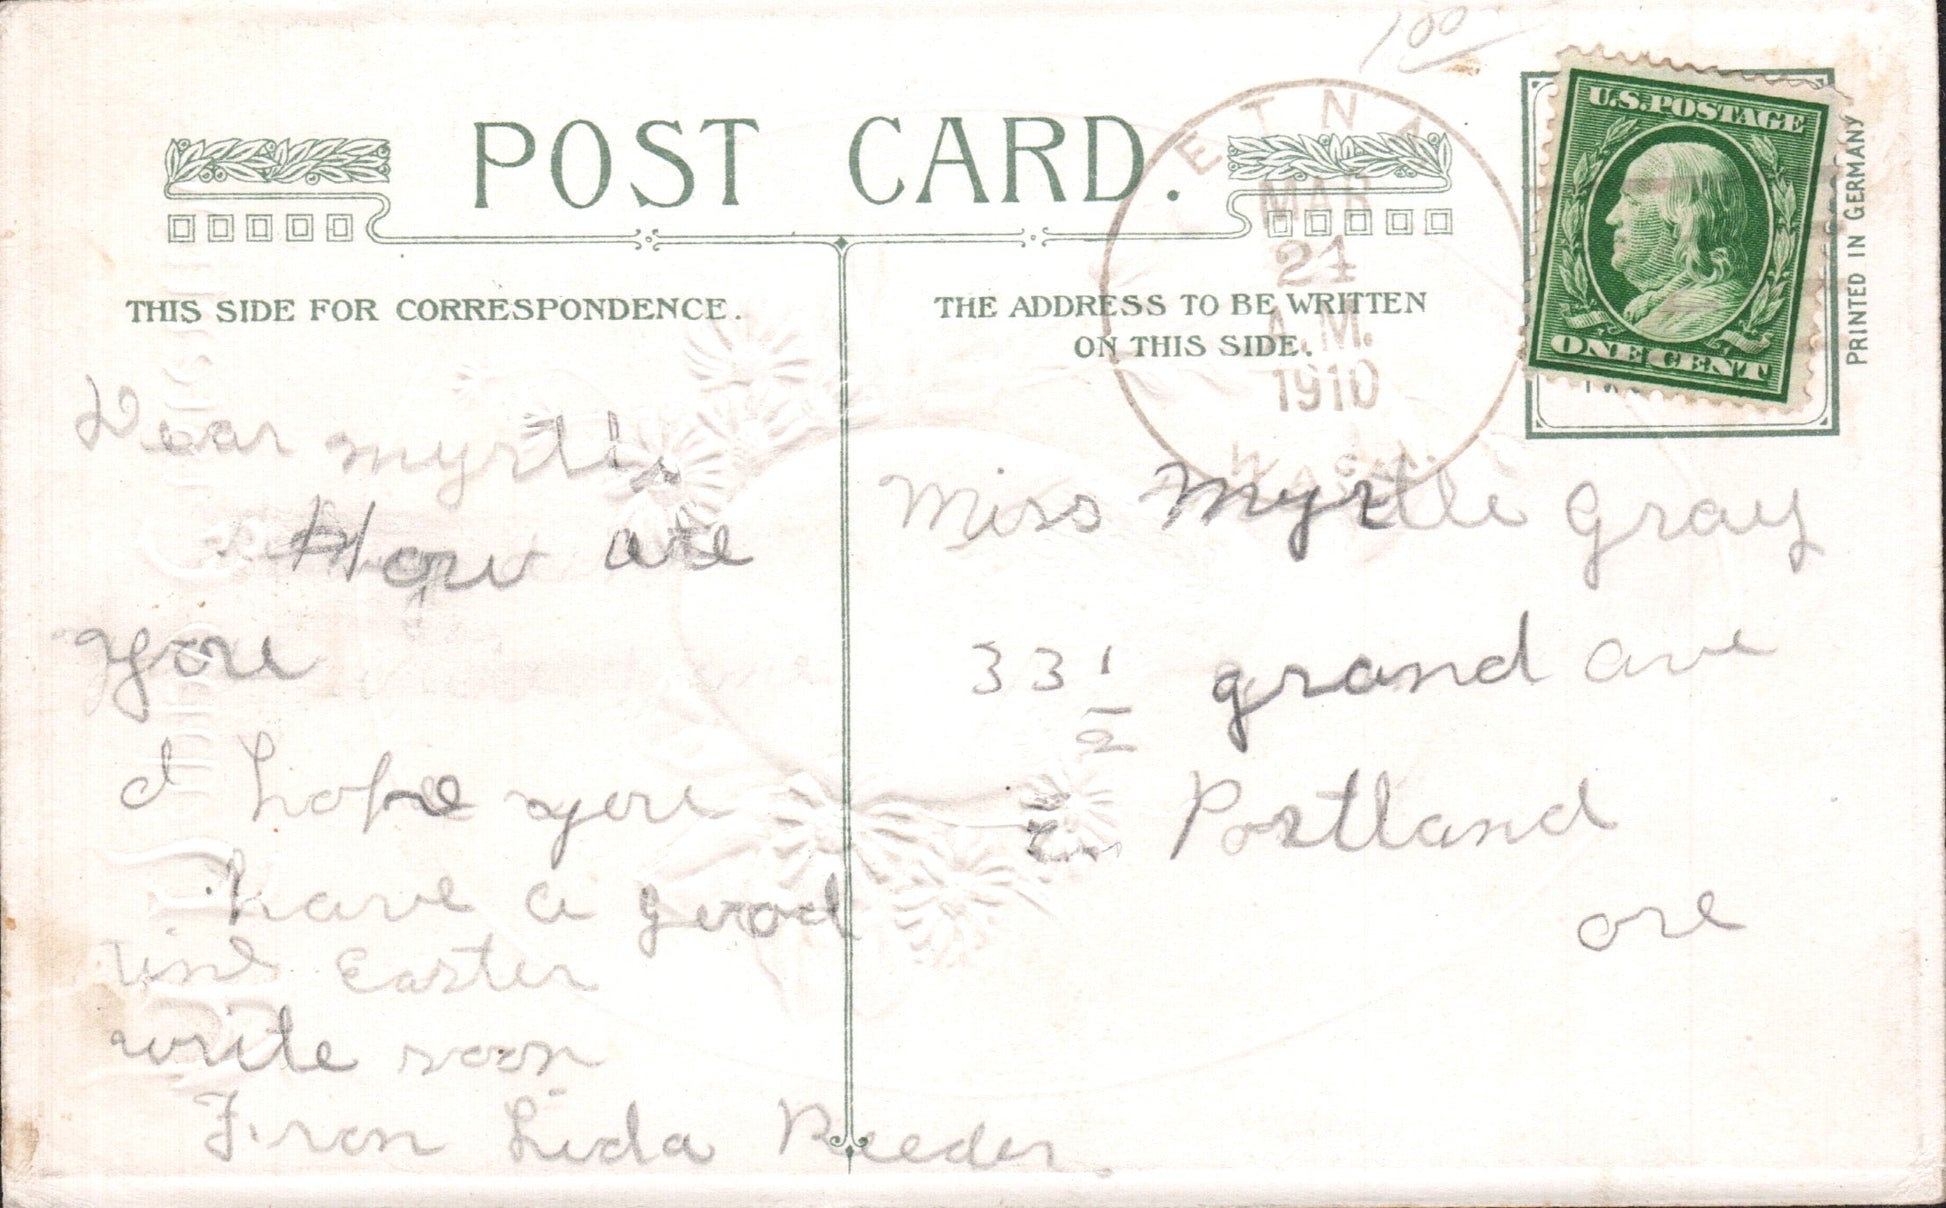 100
POST CARD.
THIS SIDE FOR CORRESPONDENCE.
THE ADDRESS TO BE WRITTEN
ON THIS SIDE.
ETNA
MAR
24
A.M.
1910
WASH.
U.S. POSTAGE
ONE CENT
PRINTED IN GERMANY
Dear myrtle
How are
you
I hope you
have a good
time Easter
write soon
From Lida Reeder.
Miss Myrtle Gray
33 1/2 grand ave
Portland
ore